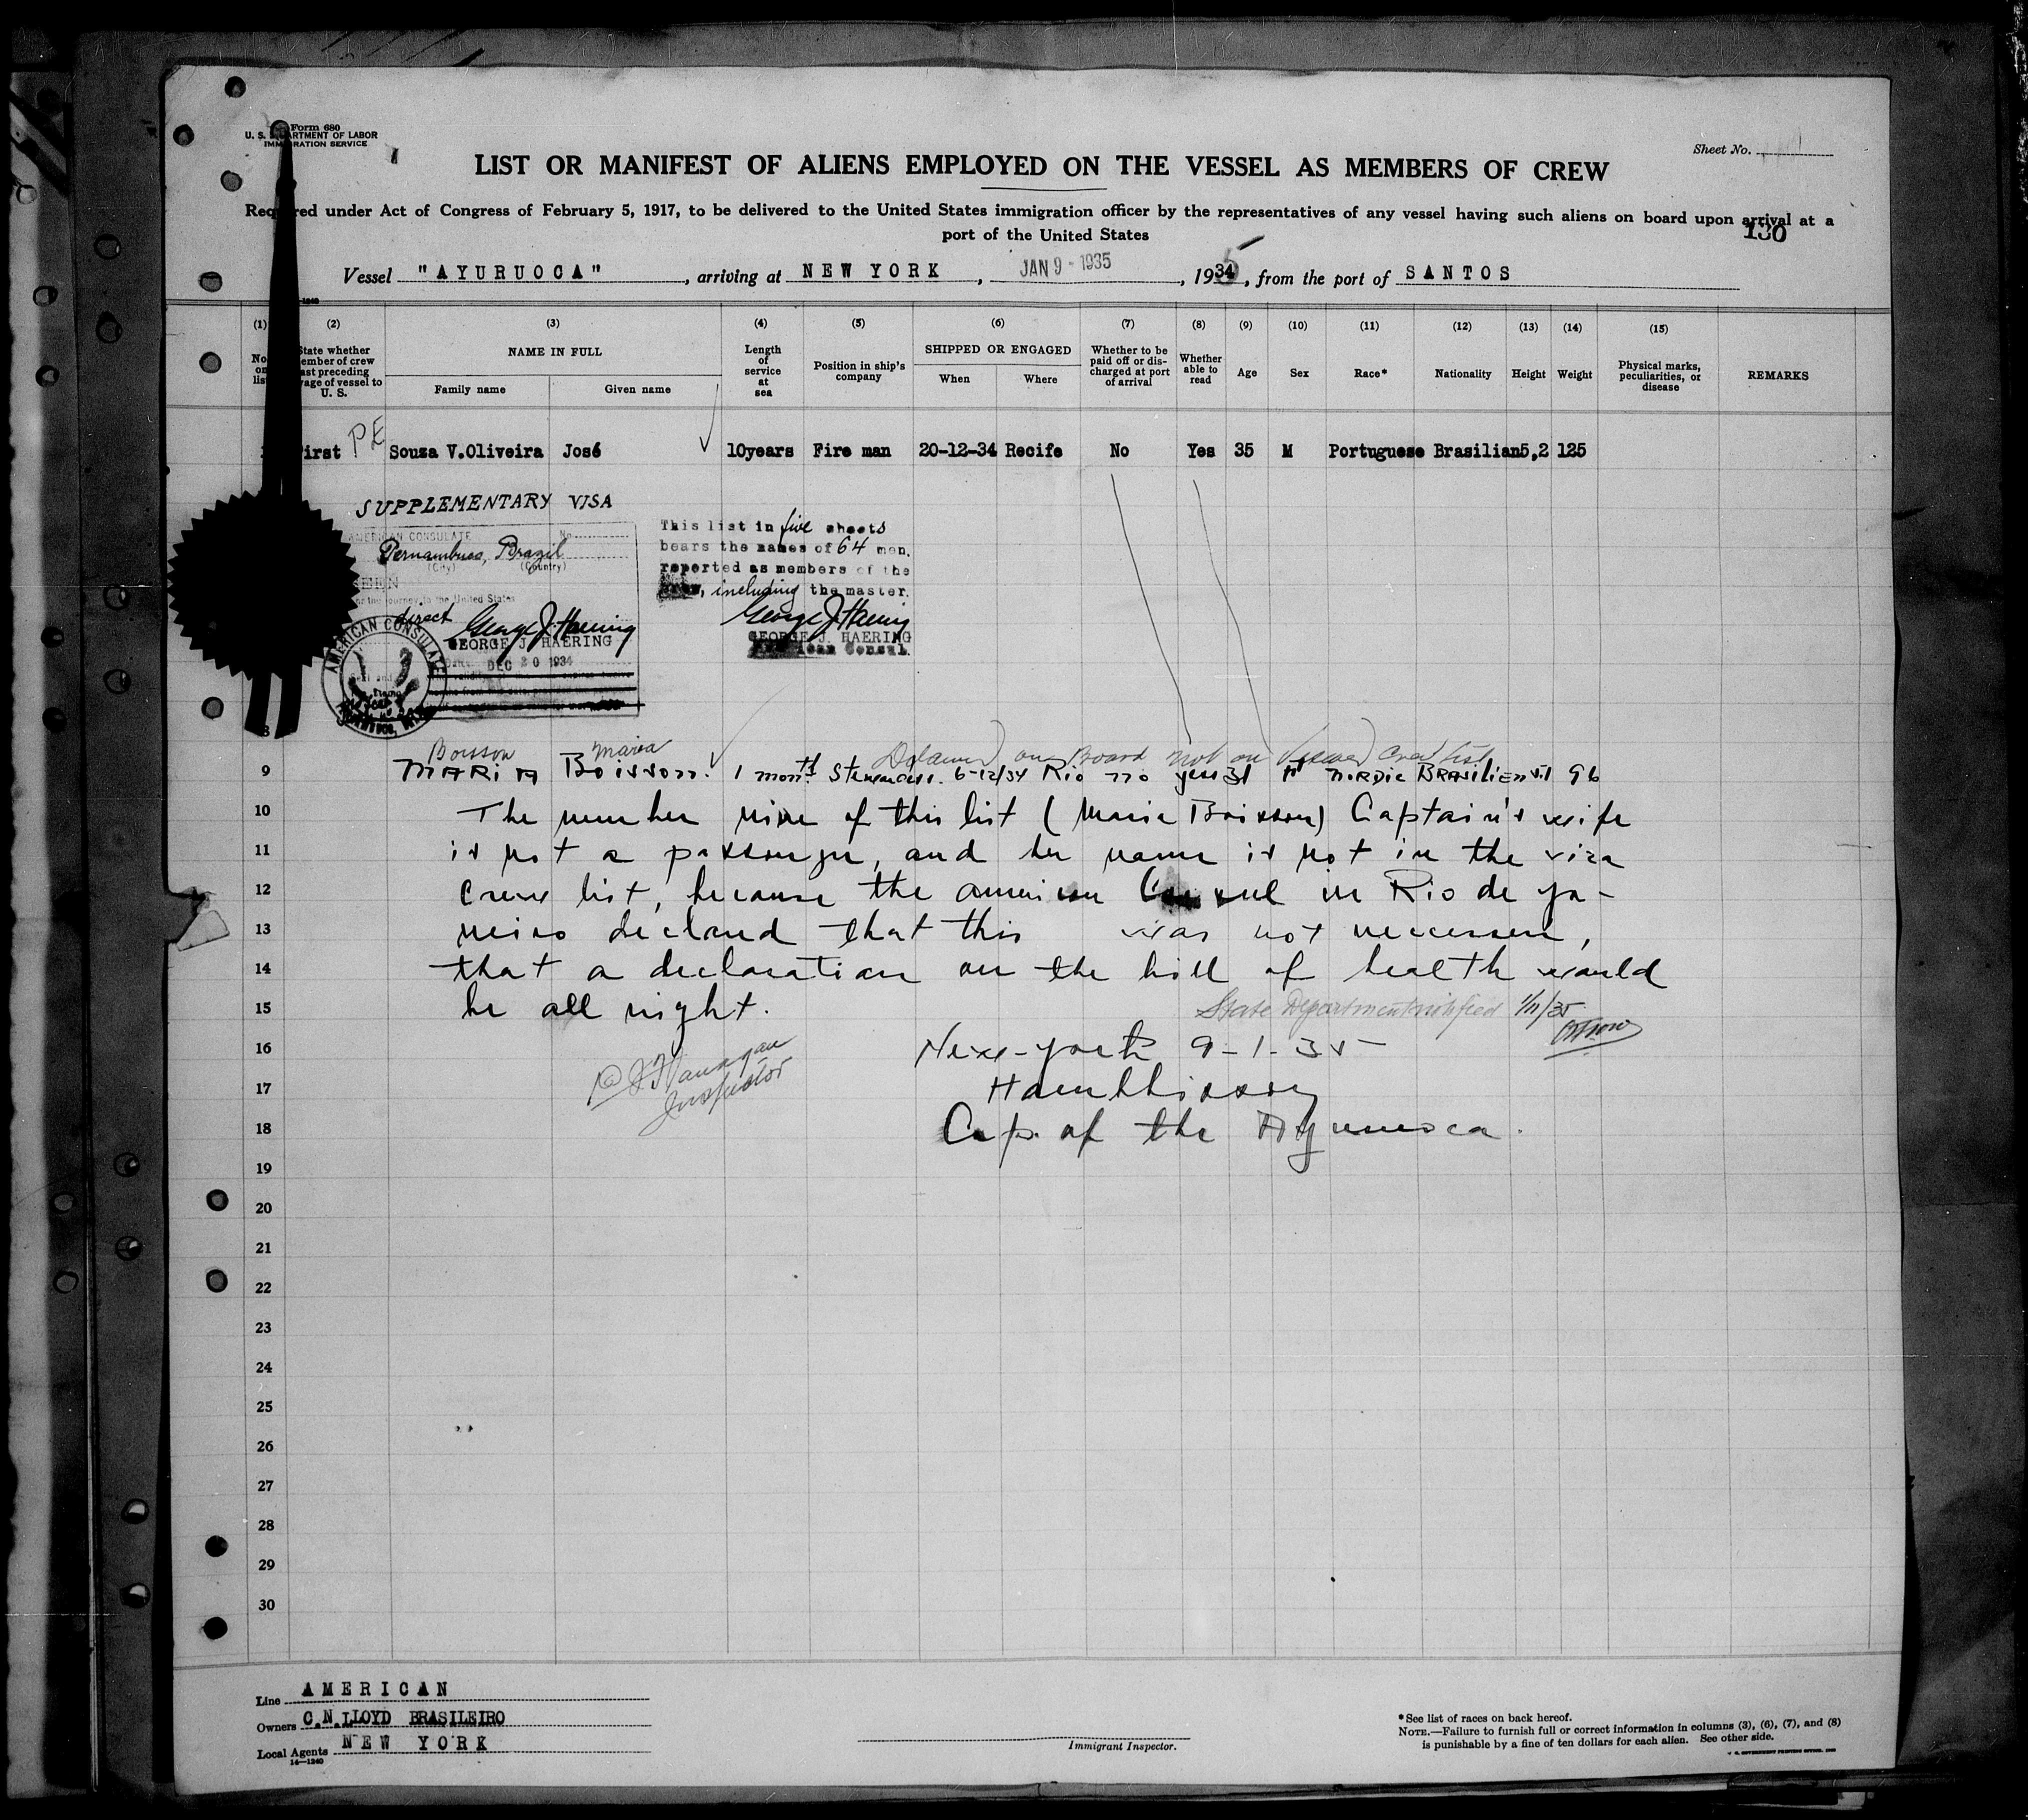 Form 680
U. S. DEPARTMENT OF LABOR
IMMIGRATION SERVICE
Sheet No.
LIST OR MANIFEST OF ALIENS EMPLOYED ON THE VESSEL AS MEMBERS OF CREW
Required under Act of Congress of February 5, 1917, to be delivered to the United States immigration officer by the representatives of any vessel having such aliens on board upon arrival at a
port of the United States
130
Vessel "AYURUOCA", arriving at NEW YORK, JAN 9 - 1935, 1935, from the port of SANTOS
(1) (2) (3) (4) (5) (6) (7) (8) (9) (10) (11) (12) (13) (14) (15)
No. on list
State whether member of crew last preceding voyage of vessel to U. S.
NAME IN FULL
Family name
Given name
Length of service at sea
Position in ship's company
SHIPPED OR ENGAGED
When
Where
Whether to be paid off or discharged at port of arrival
Whether able to read
Age
Sex
Race*
Nationality
Height
Weight
Physical marks, peculiarities, or disease
REMARKS
1 First PE Souza V.Oliveira José 10years Fire man 20-12-34 Recife No Yes 35 M Portuguese Brasilian 5,2 125
SUPPLEMENTARY VISA
AMERICAN CONSULATE No.
Pernambuco, Brazil
(City) (Country)
SEEN
For the journey to the United States
direct
George J. Haering
GEORGE J. HAERING
Date DEC 20 1934
AMERICAN CONSULATE
This list in five sheets
bears the names of 64 men,
reported as members of the
crew, including the master.
George J. Haering
GEORGE J. HAERING
American Consul.
8
Boisson Maria Declared on Board not on Visaed Crew List
9 MARIA Boisson. 1 month Stewardess. 6-12/34 Rio no yes 31 F NORDIC BRASILIEN 5.1 96
10 The number nine of this list (Maria Boisson) Captain's wife
11 is not a passenger, and her name is not in the visa
12 crew list, because the american Consul in Rio de Ja-
13 neiro declared that this was not necessary,
14 that a declaration on the bill of health would
15 be all right.
State Department notified 1/11/35
16 New-York 9-1-35
Inspector
17
18 Cap. of the Ayuruoca.
19
20
21
22
23
24
25
26
27
28
29
30
Line AMERICAN
Owners C.N.LLOYD BRASILEIRO
Local Agents NEW YORK
14—1240
Immigrant Inspector.
*See list of races on back hereof.
NOTE.—Failure to furnish full or correct information in columns (3), (6), (7), and (8)
is punishable by a fine of ten dollars for each alien. See other side.